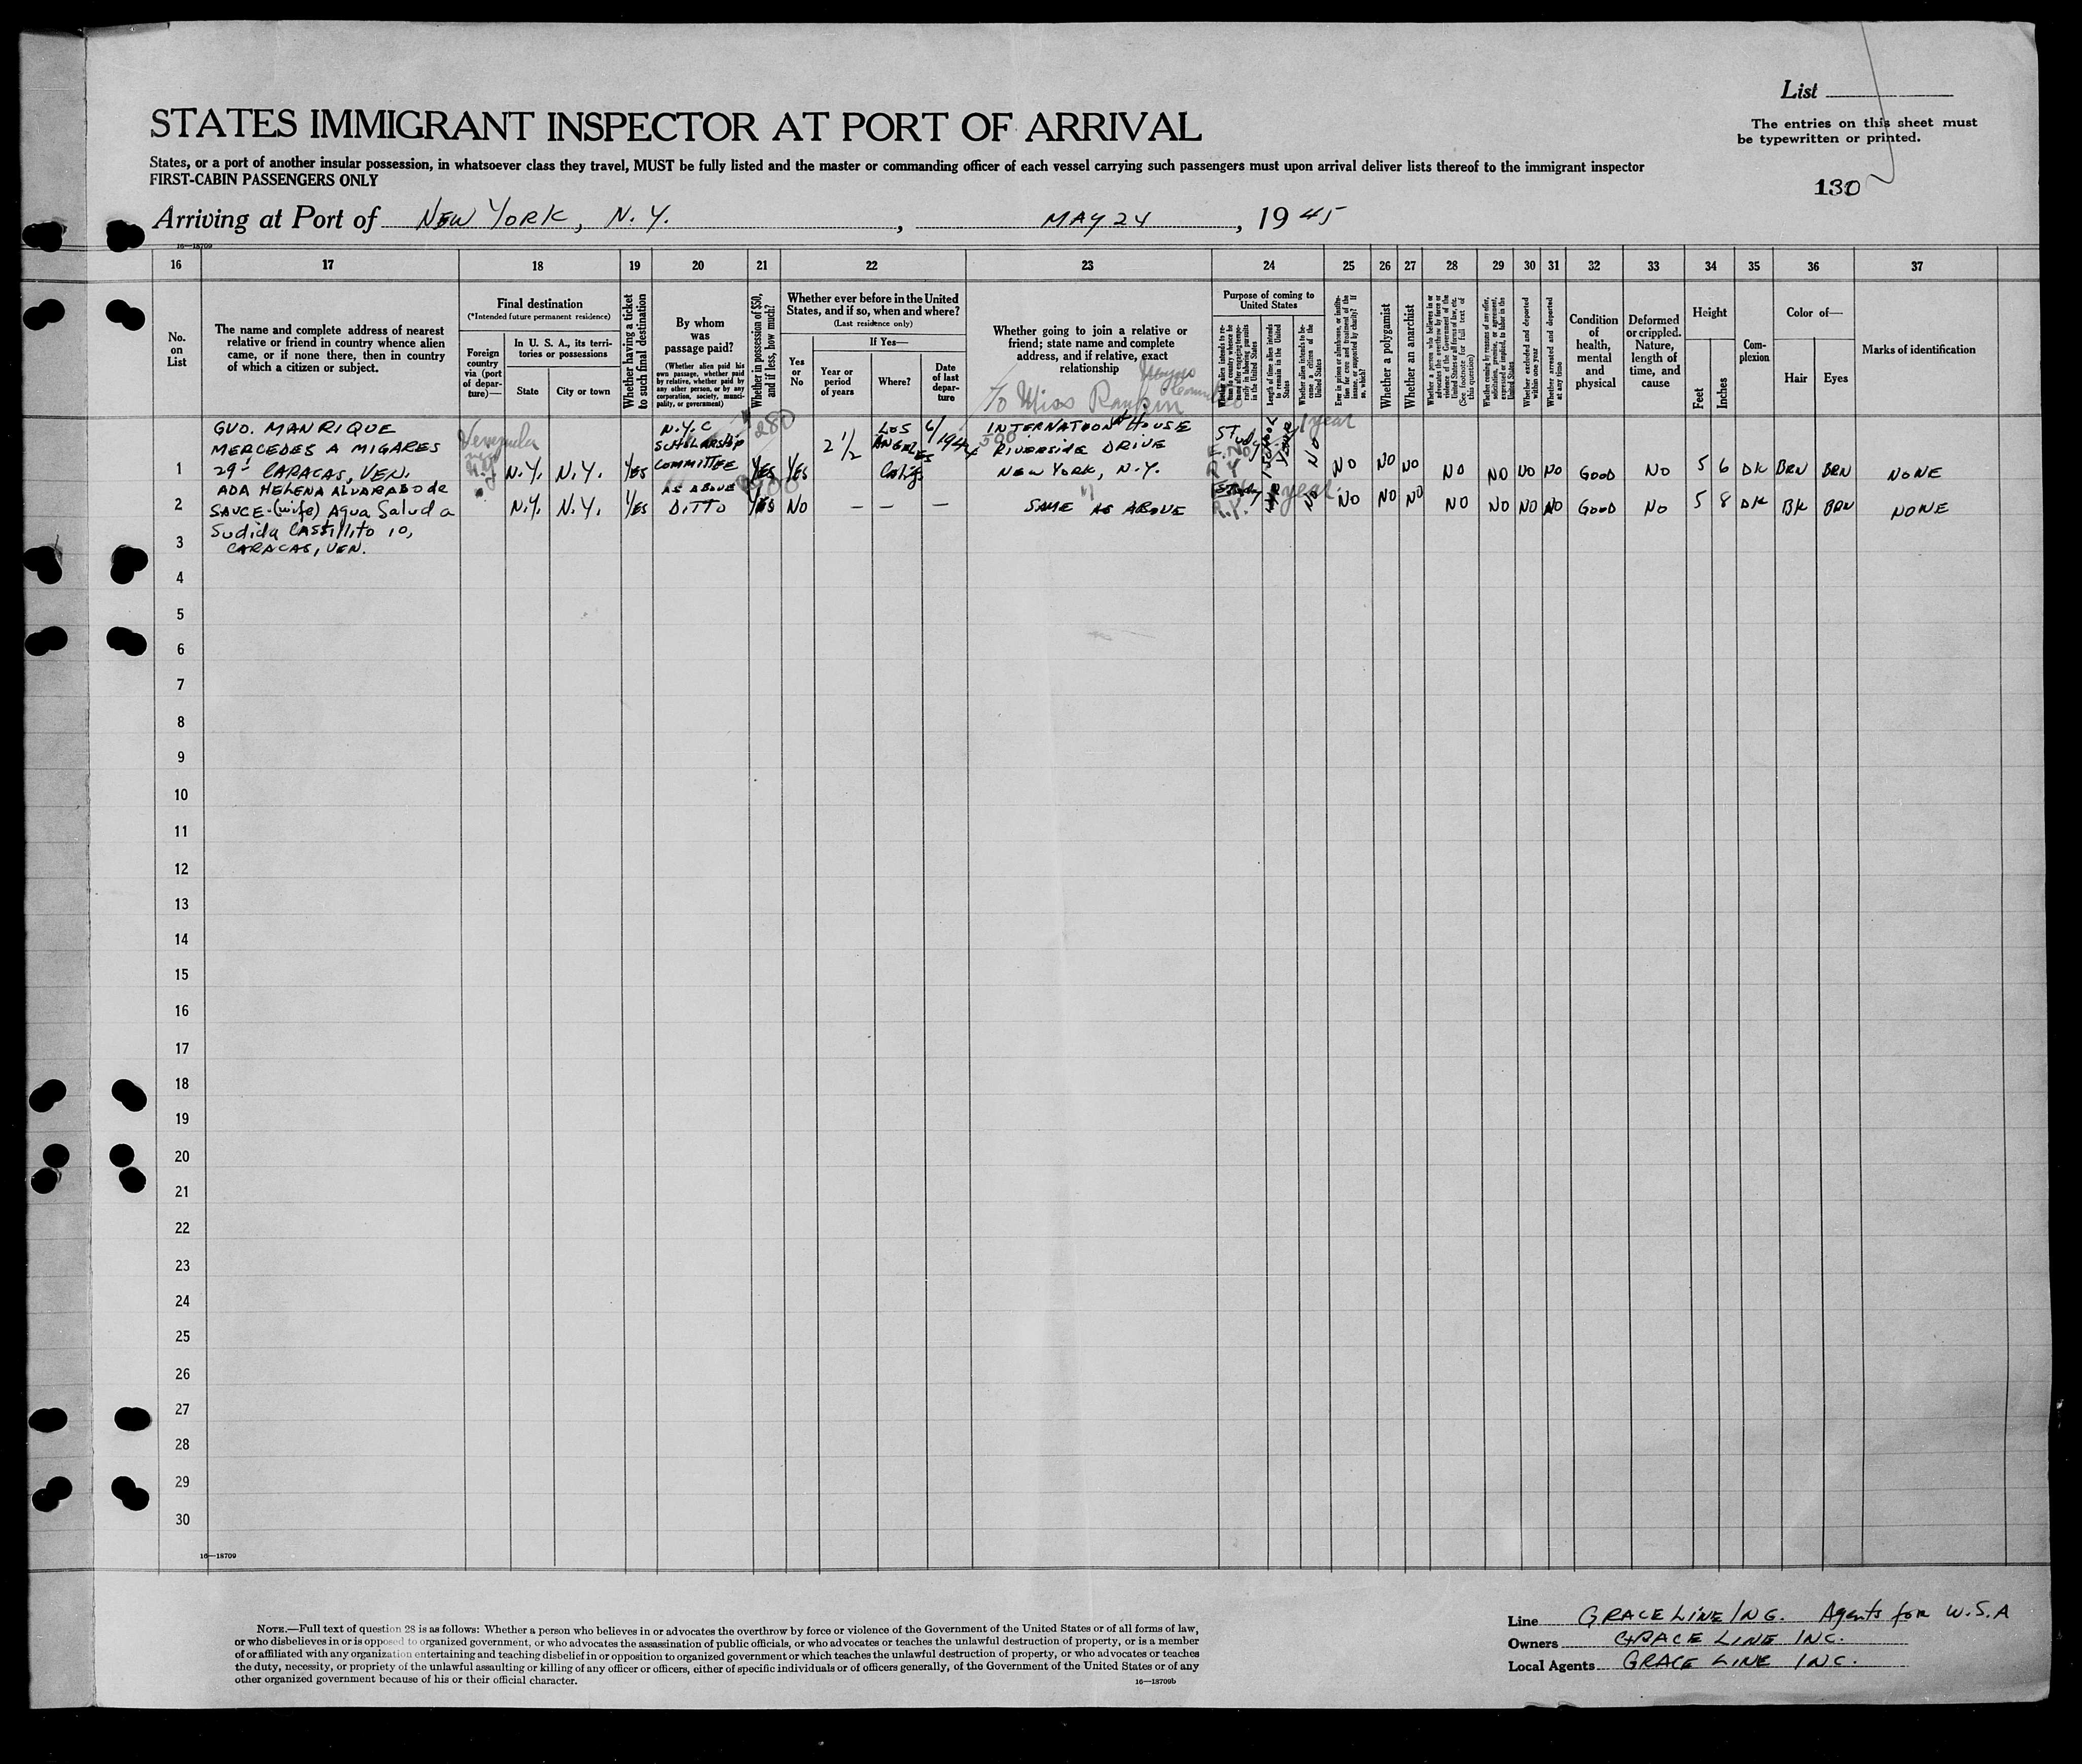 List
STATES IMMIGRANT INSPECTOR AT PORT OF ARRIVAL
The entries on this sheet must
be typewritten or printed.
States, or a port of another insular possession, in whatsoever class they travel, MUST be fully listed and the master or commanding officer of each vessel carrying such passengers must upon arrival deliver lists thereof to the immigrant inspector
FIRST-CABIN PASSENGERS ONLY
130
Arriving at Port of NEW YORK, N.Y. , MAY 24 , 19 45
16—18709
16 17 18 19 20 21 22 23 24 25 26 27 28 29 30 31 32 33 34 35 36 37
No.
on
List
The name and complete address of nearest
relative or friend in country whence alien
came, or if none there, then in country
of which a citizen or subject.
Final destination
(*Intended future permanent residence)
Foreign
country
via (port
of depar-
ture)—
In U. S. A., its terri-
tories or possessions
State
City or town
Whether having a ticket
to such final destination
By whom
was
passage paid?
(Whether alien paid his
own passage, whether paid
by relative, whether paid by
any other person, or by any
corporation, society, munici-
pality, or government)
Whether in possession of $50,
and if less, how much?
Whether ever before in the United
States, and if so, when and where?
(Last residence only)
Yes
or
No
If Yes—
Year or
period
of years
Where?
Date
of last
depar-
ture
Whether going to join a relative or
friend; state name and complete
address, and if relative, exact
relationship
To Miss
Purpose of coming to
United States
Length of time alien intends
to remain in the United
States
Whether alien intends to be-
come a citizen of the
United States
Whether a polygamist
Whether an anarchist
Whether excluded and deported
within one year
Whether arrested and deported
at any time
Condition
of
health,
mental
and
physical
Deformed
or crippled.
Nature,
length of
time, and
cause
Height
Feet
Inches
Com-
plexion
Color of—
Hair
Eyes
Marks of identification
GUO. MANRIQUE
MERCEDES A MIGARES
1 29- CARACAS, VEN. Venezuela N.Y. N.Y. YES N.Y.C SCHOLARSHIP COMMITTEE YES 280 YES 2 1/2 LOS ANGELES Calif 6/1944 INTERNATION'L HOUSE 500 RIVERSIDE DRIVE NEW YORK, N.Y. STUDY 1 SCHOOL YEAR 1 year NO NO NO NO NO NO NO NO GOOD NO 5 6 DK BRN BRN NONE
ADA HELENA ALVARABO de
2 SAUCE-(wife) Agua Salud a N.Y. N.Y. YES AS ABOVE DITTO YES NO — — — SAME " AS ABOVE year NO NO NO NO NO NO NO NO GOOD NO 5 8 DK BK BRN NONE
Sudida CASTILLITO 10,
3 CARACAS, VEN.
4
5
6
7
8
9
10
11
12
13
14
15
16
17
18
19
20
21
22
23
24
25
26
27
28
29
30
16—18709
NOTE.—Full text of question 28 is as follows: Whether a person who believes in or advocates the overthrow by force or violence of the Government of the United States or of all forms of law,
or who disbelieves in or is opposed to organized government, or who advocates the assassination of public officials, or who advocates or teaches the unlawful destruction of property, or is a member
of or affiliated with any organization entertaining and teaching disbelief in or opposition to organized government or which teaches the unlawful destruction of property, or who advocates or teaches
the duty, necessity, or propriety of the unlawful assaulting or killing of any officer or officers, either of specific individuals or of officers generally, of the Government of the United States or of any
other organized government because of his or their official character.
16—18709b
Line GRACE LINE INC. Agents for W.S.A
Owners GRACE LINE INC.
Local Agents GRACE LINE INC.